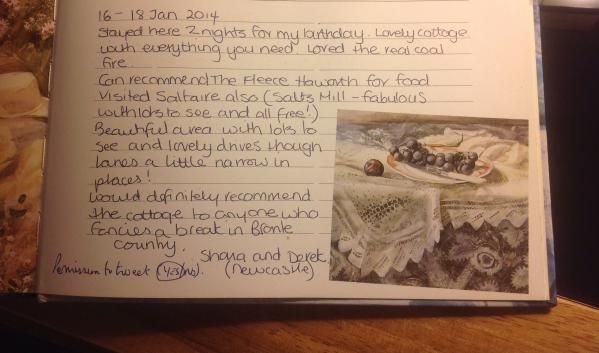 16-18 Jan 2014
Stayed here 2 nights for my birthday. Lovely cottage
with everything you need. Loved the real coal
fire.
Can recommend The Fleece Haworth for food
Visited Saltaire also (Salts Mill - fabulous
with lots to see and all free!)
Beautiful area with lots to
see and lovely drives though
lanes a little narrow in
places!
Would definitely recommend
the cottage to anyone who
fancies a break in Bronte
country.
Shona and Derek
(Newcastle)
Permission to tweet (yes/no).